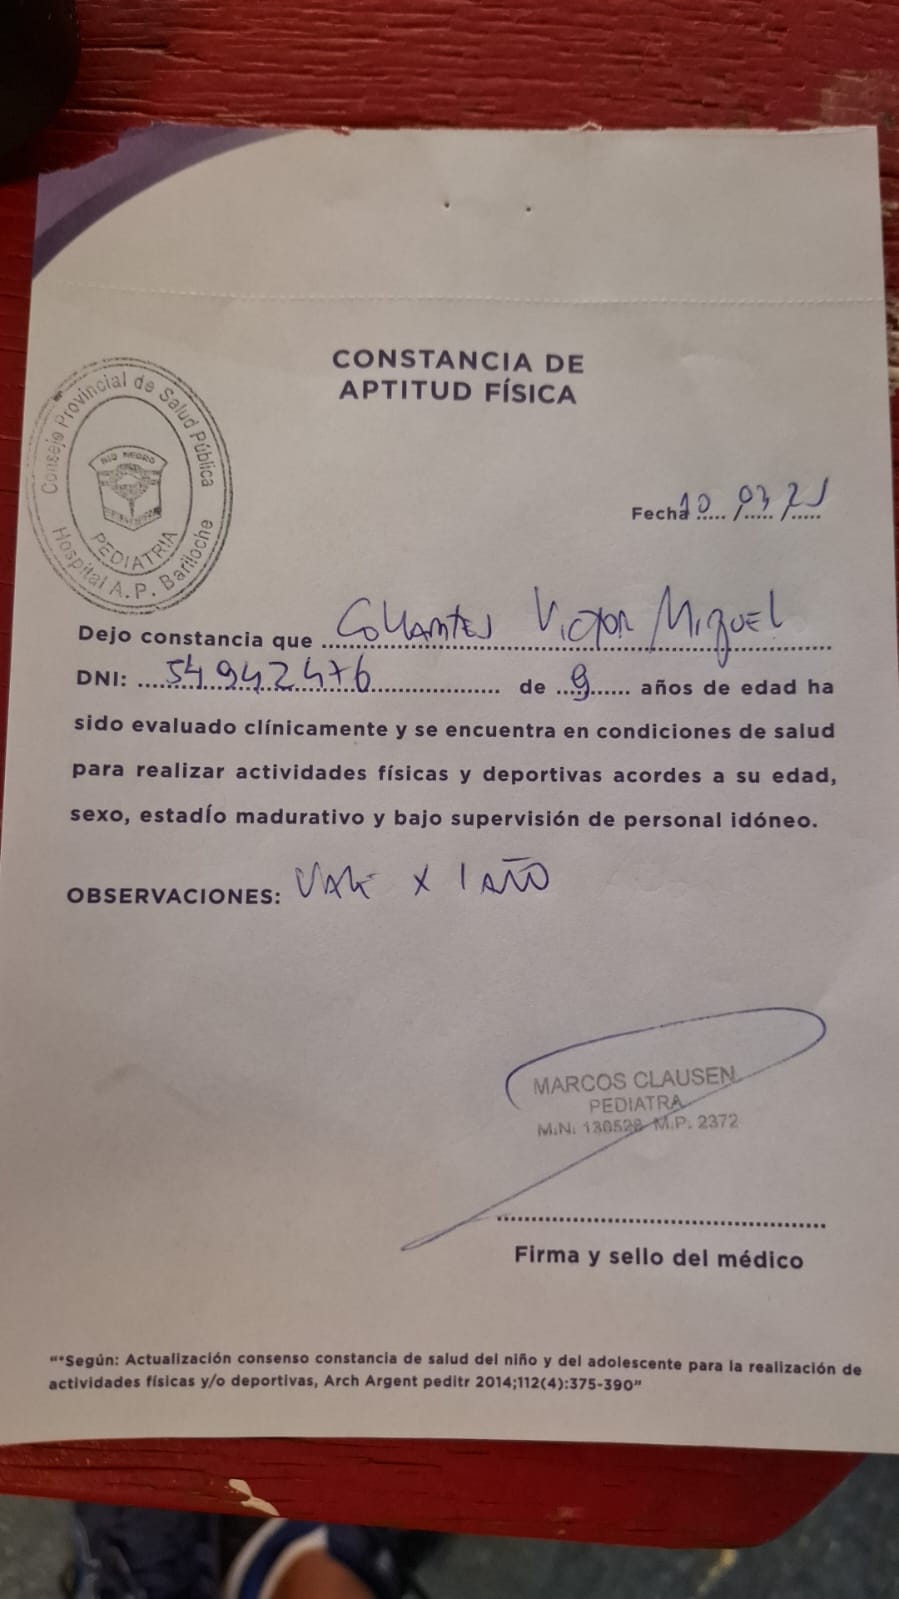 CONSTANCIA DE
APTITUD FÍSICA
Consejo Provincial de Salud Pública
RIO NEGRO
PEDIATRIA
Hospital A.P. Bariloche
Fecha 10/03/25
Dejo constancia que Collantes Victor Miguel
DNI: 54942476 de 9 años de edad ha
sido evaluado clínicamente y se encuentra en condiciones de salud
para realizar actividades físicas y deportivas acordes a su edad,
sexo, estadÍo madurativo y bajo supervisión de personal idóneo.
OBSERVACIONES: VALE X 1 AÑO
MARCOS CLAUSEN
PEDIATRA
M.N. 130528 M.P. 2372
Firma y sello del médico
"*Según: Actualización consenso constancia de salud del niño y del adolescente para la realización de
actividades físicas y/o deportivas, Arch Argent peditr 2014;112(4):375-390"